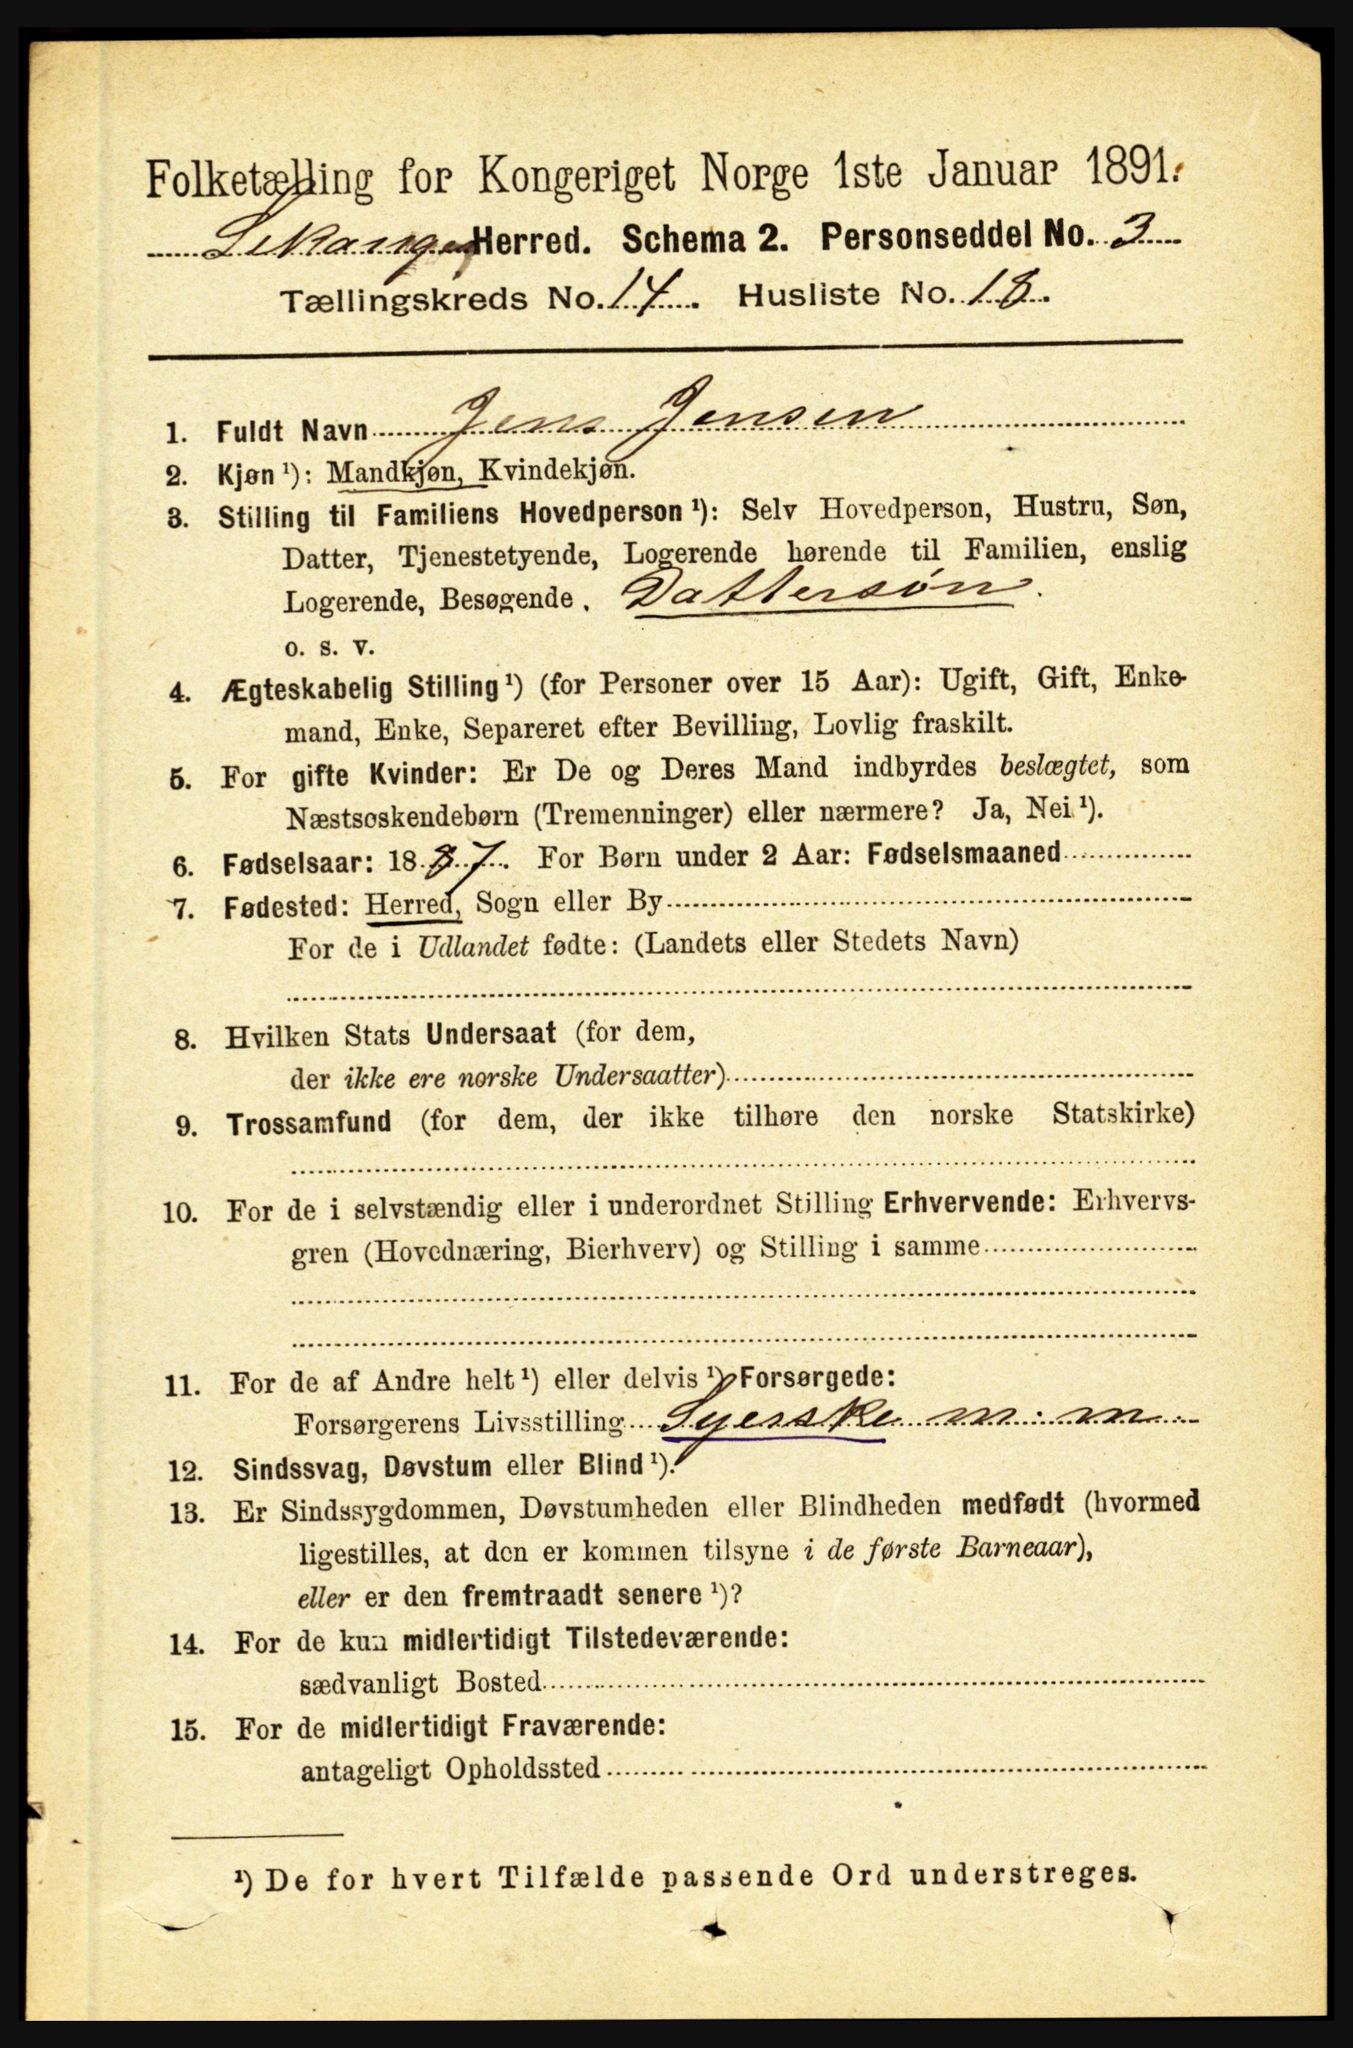 Folketælling for Kongeriget Norge 1ste Januar 1891.
Leikanger Herred. Schema 2. Personseddel No. 3
Tællingskreds No. 14. Husliste No. 18.
1. Fuldt Navn Jens Jensen
2. Kjøn ¹): Mandkjøn, Kvindekjøn.
3. Stilling til Familiens Hovedperson ¹): Selv Hovedperson, Hustru, Søn,
Datter, Tjenestetyende, Logerende hørende til Familien, enslig
Logerende, Besøgende. Dattersøn.
o. s. v.
4. Ægteskabelig Stilling ¹) (for Personer over 15 Aar): Ugift, Gift, Enke-
mand, Enke, Separeret efter Bevilling, Lovlig fraskilt.
5. For gifte Kvinder: Er De og Deres Mand indbyrdes beslægtet, som
Næstsøskendebørn (Tremenninger) eller nærmere? Ja, Nei ¹).
6. Fødselsaar: 1887. For Børn under 2 Aar: Fødselsmaaned
7. Fødested: Herred, Sogn eller By
For de i Udlandet fødte: (Landets eller Stedets Navn)
8. Hvilken Stats Undersaat (for dem,
der ikke ere norske Undersaatter)
9. Trossamfund (for dem, der ikke tilhøre den norske Statskirke)
10. For de i selvstændig eller i underordnet Stilling Erhvervende: Erhvervs-
gren (Hovednæring, Bierhverv) og Stilling i samme
11. For de af Andre helt ¹) eller delvis ¹) Forsørgede:
Forsørgerens Livsstilling Syerske m. m.
12. Sindssvag, Døvstum eller Blind ¹).
13. Er Sindssygdommen, Døvstumheden eller Blindheden medfødt (hvormed
ligestilles, at den er kommen tilsyne i de første Barneaar),
eller er den fremtraadt senere ¹)?
14. For de kun midlertidigt Tilstedeværende:
sædvanligt Bosted
15. For de midlertidigt Fraværende:
antageligt Opholdssted
¹) De for hvert Tilfælde passende Ord understreges.